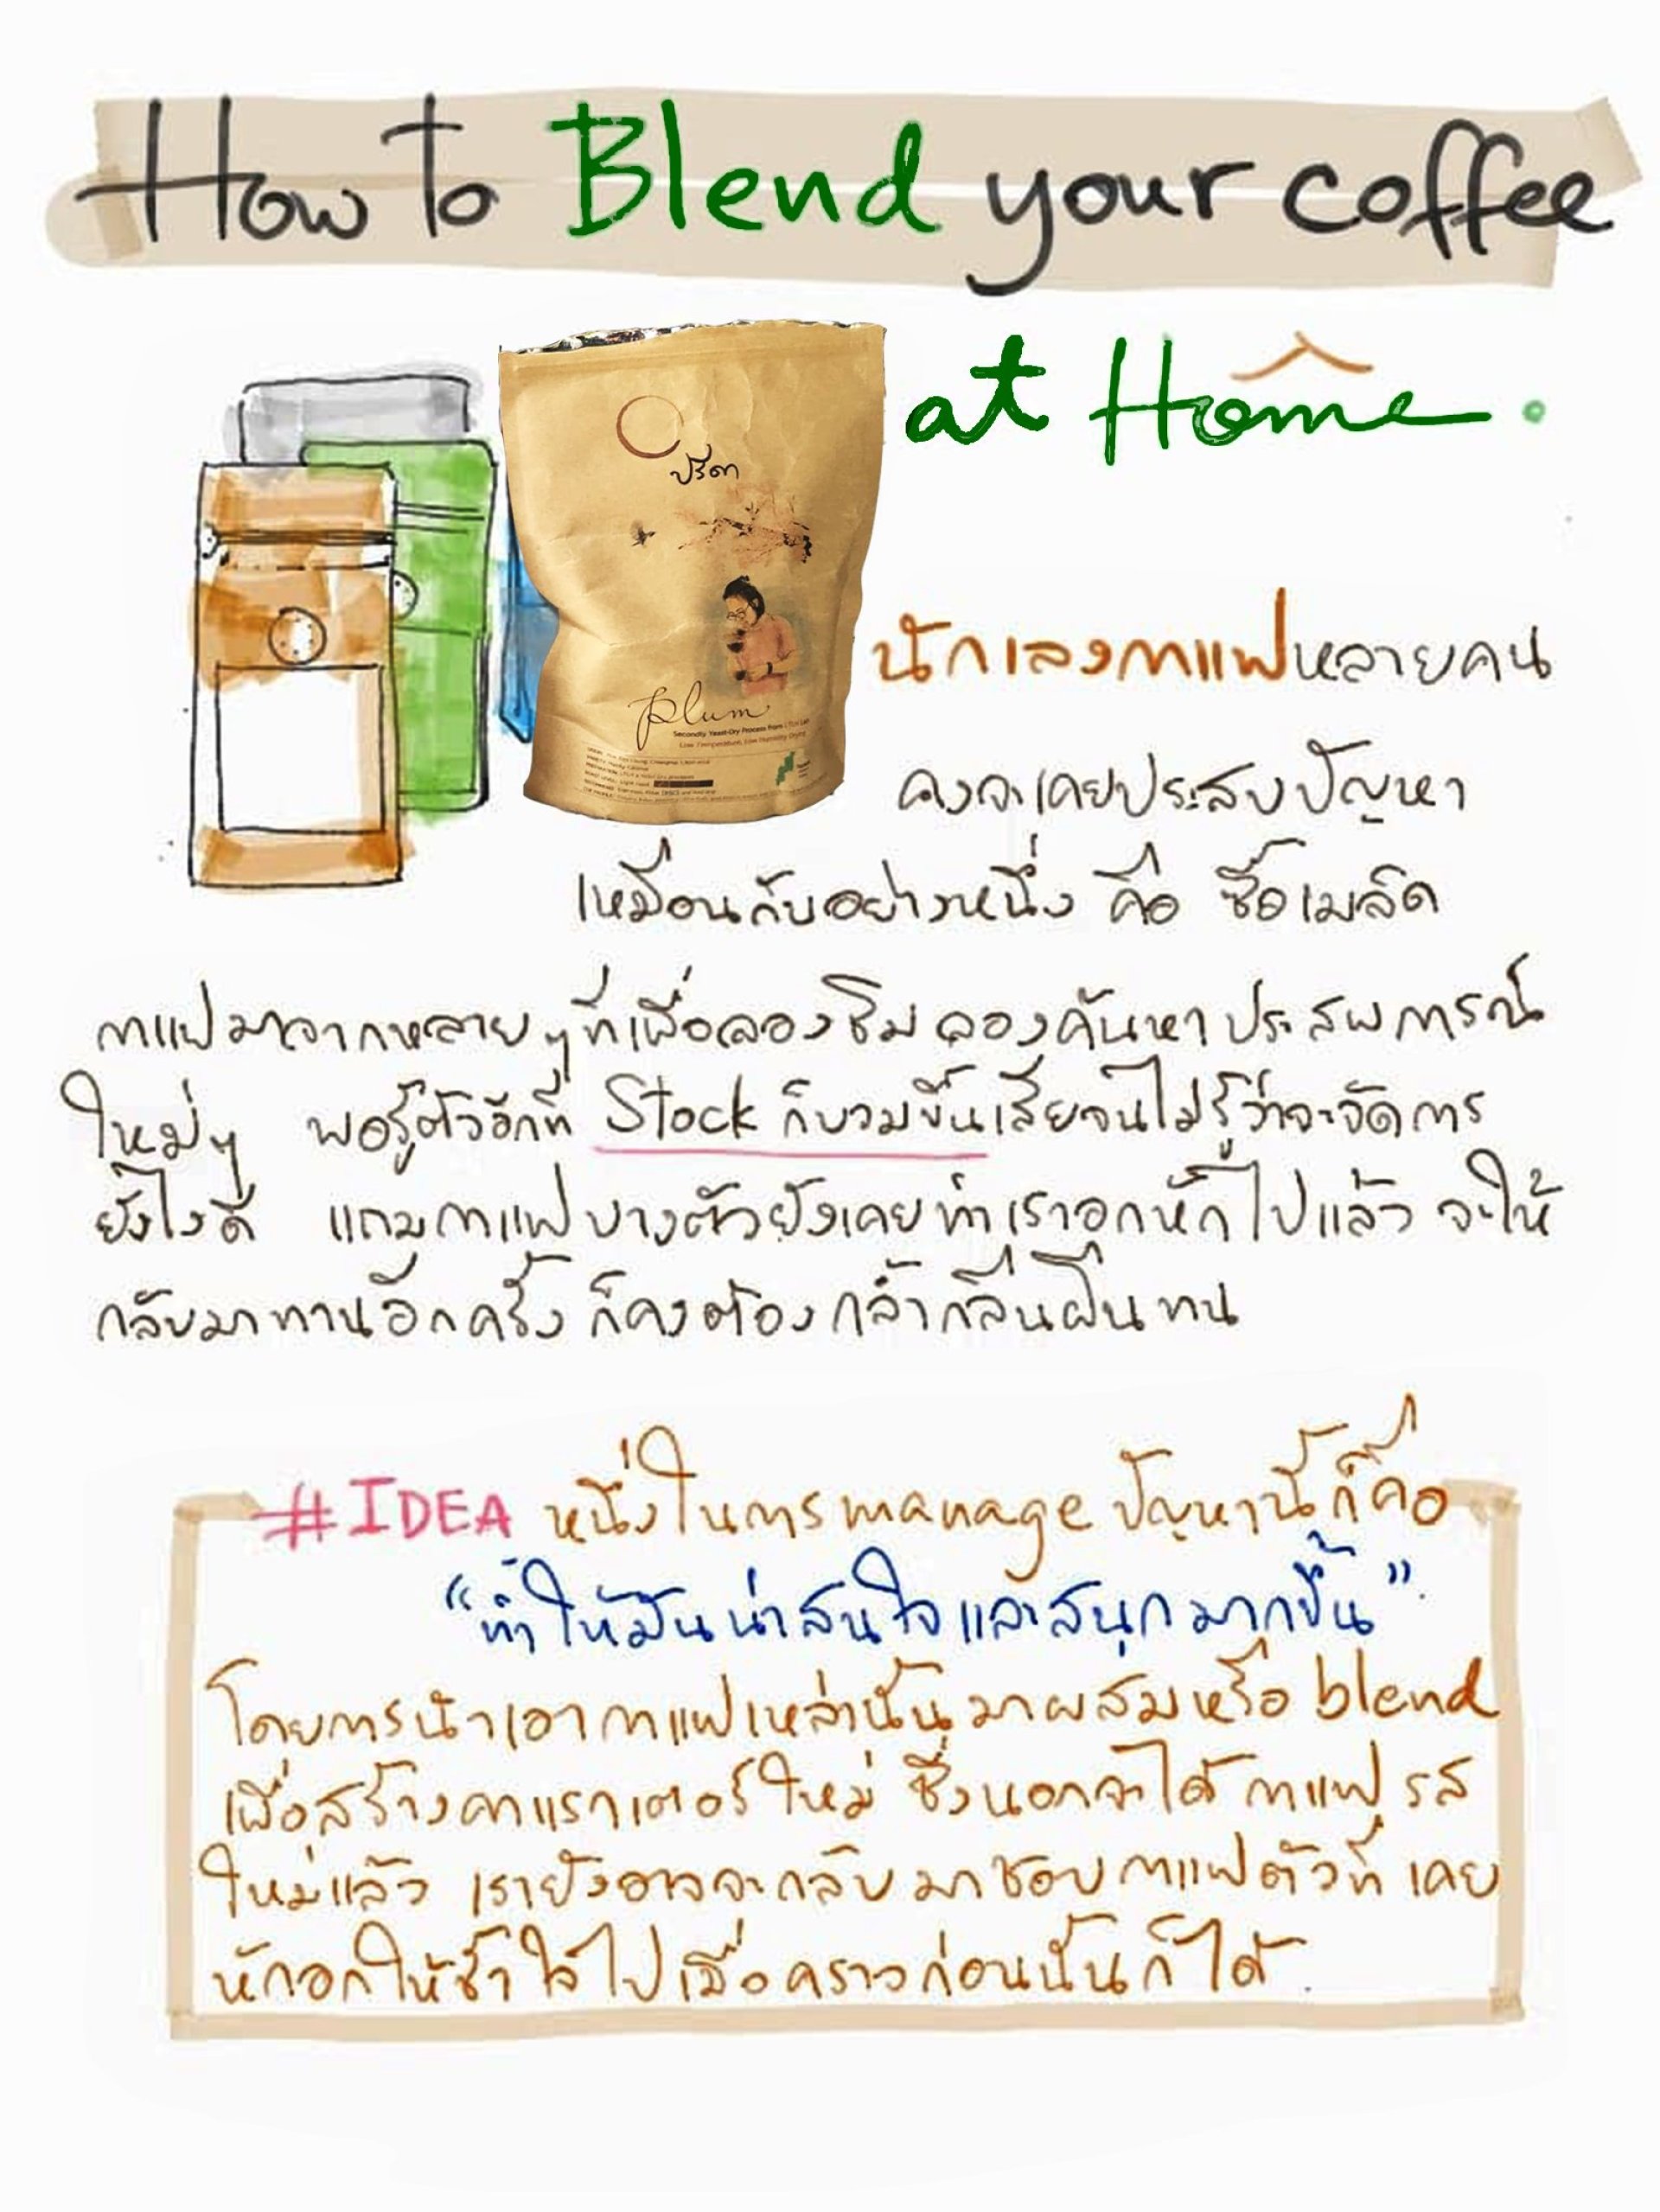 How to Blend your coffee
at Home.
ปรีดา
Plum
Secondly Yeast-Dry Process from
Low Temperature, Low Humidity Drying
นักเลงกาแฟหลายคน
คงจะเคยประสบปัญหา
เหมือนกันอย่างหนึ่ง คือ ซื้อเมล็ด
กาแฟมาจากหลายๆที่เพื่อลองชิม ลองค้นหาประสพการณ์
ใหม่ๆ พอรู้ตัวอีกที Stock ก็บวมขึ้นเสียจนไม่รู้ว่าจะจัดการ
ยังไงดี แถมกาแฟบางตัวยังเคยทำเราอกหักไปแล้ว จะให้
กลับมาทานอีกครั้ง ก็คงต้องกล้ำกลืนฝืนทน
#IDEA หนึ่งในการ manage ปัญหานี้ก็คือ
“ทำให้มันน่าสนใจและสนุกมากขึ้น”
โดยการนำเอากาแฟเหล่านั้นมาผสมหรือ blend
เพื่อสร้างคาแรกเตอร์ใหม่ ซึ่งนอกจะได้กาแฟรส
ใหม่แล้ว เรายังอาจจะกลับมาชอบกาแฟตัวที่เคย
หักอกให้ช้ำใจไปเมื่อคราวก่อนนั้นก็ได้